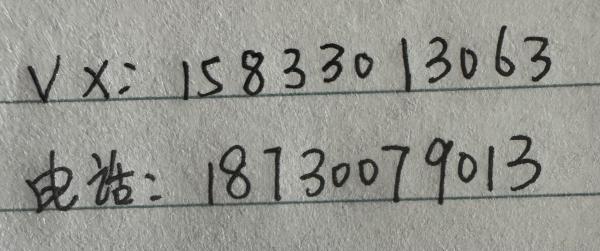 VX: 15833013063
电话: 18730079013